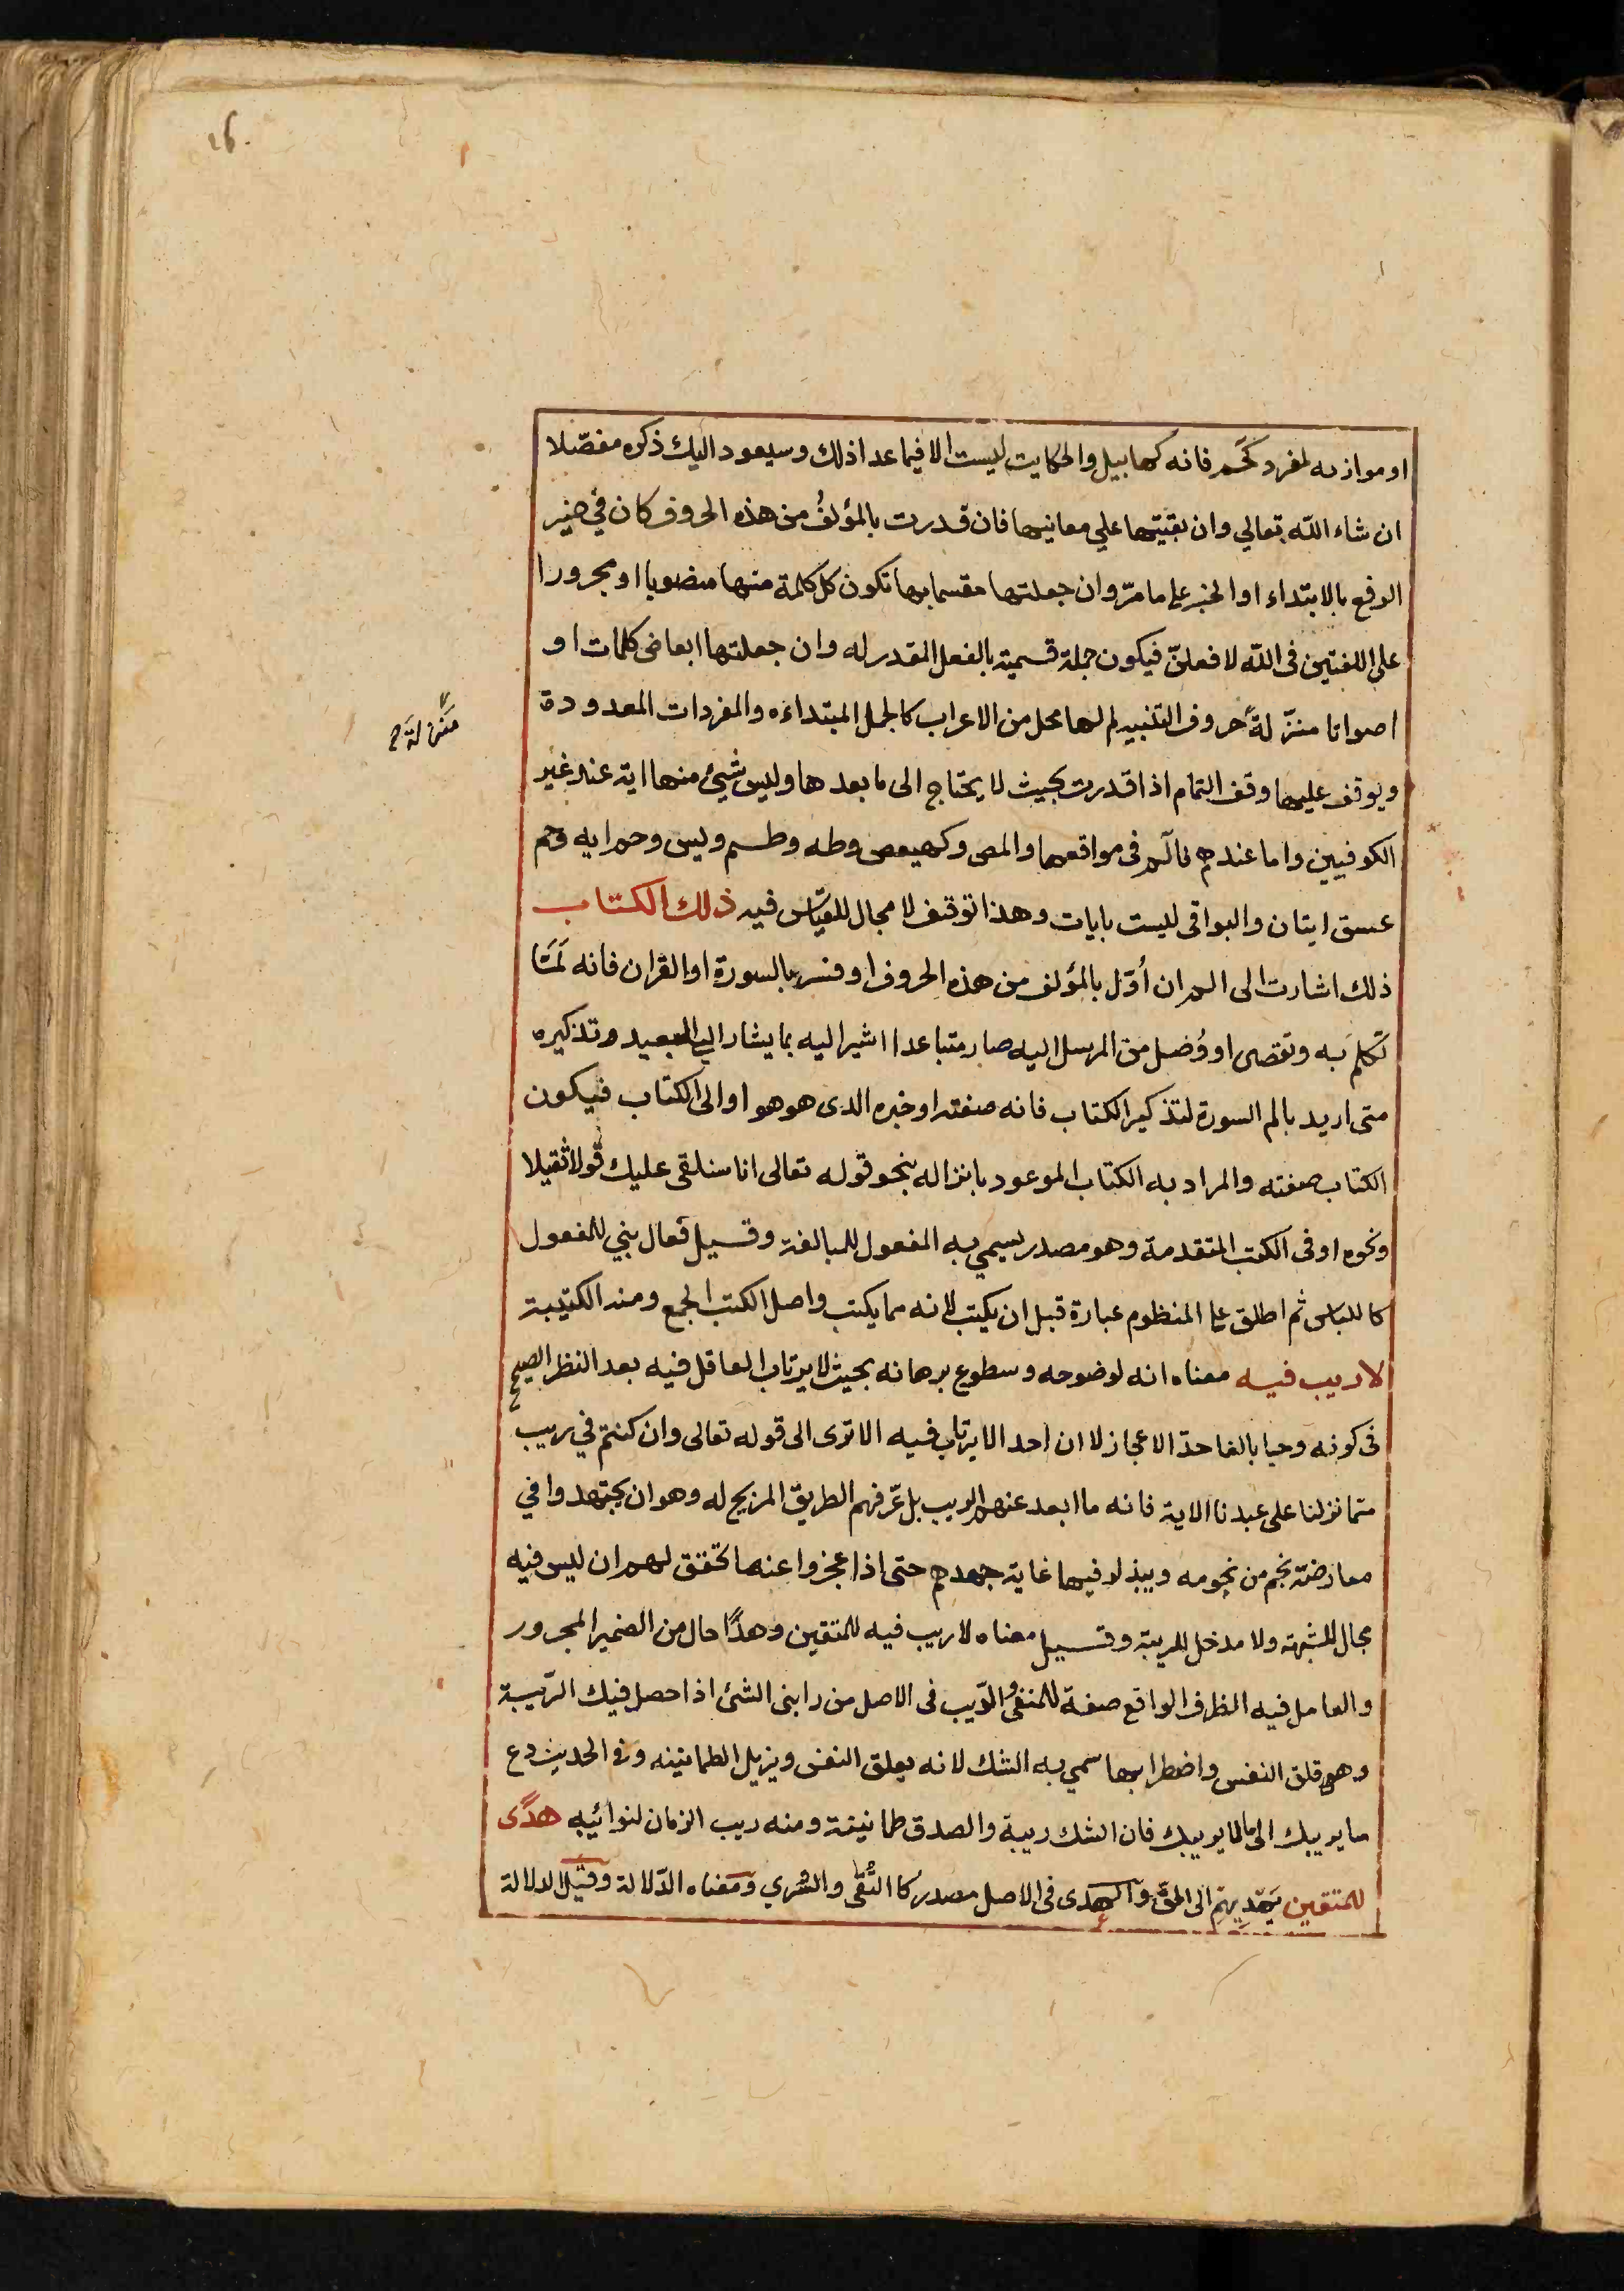 ٢٦
او موازنه لمفرد كحم فانه كهابيل والحكايت ليست الا فيما عدا ذلك وسيعود اليك ذكره مفصّلا
ان شاء الله تعالي وان بقيتها علي معانيها فان قدرت بالمؤلفُ من هذه الحروف كان في حيز
الرفع بالابتداء او الخبر علي ما مرّ وان جعلتها مقسما بها تكون كل كلمة منها منصوبا او مجرورا
علي اللغتين فى الله لافعلنّ فيكون جملة قسمية بالفعل المقدر له وان جعلتها ابعاض كلمات او
اصواتا منزّلةً حروف التنبيه لم لها محل من الاعراب كالجمل المبتداءه والمفردات المعدودة
منزلة
ويوقف عليها وقف التمام اذا قدرت بحيث لا يحتاج الى ما بعدها وليس شيئ منها اية عند غير
الكوفيين واما عندهم فالٓم فى مواقعها والمص وكهيعص وطه وطسم ويس وحم اية وحم
عسق ايتان والبواقى ليست بايات وهذا توقيف لا مجال للقيّاس فيه ذلك الكتاب
ذلك اشارت الى الم ان أوّل بالمؤلف من هذه الحروف او فسر بالسورة او القران فانه لمّا
تكلم به وتقصى او وُصل من المرسل اليه صار متباعدا اشير اليه بما يشار الي البعيد وتذكيره
متى اريد بالم السورة لتذكير الكتاب فانه صفته او خبره الدى هو هو او الى الكتاب فيكون
الكتاب صفته والمراد به الكتاب الموعود بانزاله بنحو قوله تعالى انا سنلقى عليك قولا ثقيلا
ونحوه او فى الكتب المتقدمة وهو مصدر يسمي به المفعول للمبالغة وقيل فعال بني للمفعول
كاللباس ثم اطلق علي المنظوم عبارة قبل ان يكتب لانه مما يكتب واصل الكتب الجمع ومنه الكتيبة
لا ريب فيه معناه انه لوضوحه وسطوع برهانه بحيث لا يرتاب العاقل فيه بعد النظر الصحيح
فى كونه وحيا بالغا حدّ الاعجاز لا ان احدا لا يرتاب فيه الا ترى الى قوله تعالى وان كنتم في ريب
ممّا نزلنا على عبدنا الاية فانه ما ابعد عنهم الريب بل عرّفهم الطريق المزيح له وهو ان يجتهدوا في
معارضة نجم من نجومه ويبذلو فيها غاية جهدهم حتى اذا عجزوا عنها تحقق لهم ان ليس فيه
مجال للشبهة ولا مدخل للريبة وقيل معناه لا ريب فيه للمتقين وهدًا حال من الضمير المجرور
والعامل فيه الظرف الواقع صفة للمنفى والرّيب فى الاصل من رابنى الشئ اذا حصل فيك الرّيبة
وهي قلق النفس واضطرابها سمي به الشك لانه يقلق النفس ويزيل الطمانينه وفى الحديث دع
ما يريبك الى ما لا يريبك فان الشك ريبة والصدق طمانينة ومنه ريب الزمان لنوائبه هدًى
للمتقين يَهدِيهِم الى الحقّ والهدى فى الاصل مصدر كا التُّقى والسُّري ومعناه الدّلالة وقيل الدلالة